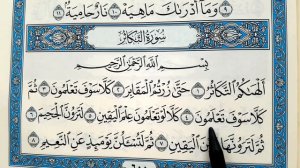 وَمَآ أَدْرَىٰكَ مَا هِيَهْ ١٠ نَارٌ حَامِيَةٌۢ ١١
سُورَةُ التَّكَاثُرِ
بِسْمِ ٱللَّهِ ٱلرَّحْمَٰنِ ٱلرَّحِيمِ
أَلْهَىٰكُمُ ٱلتَّكَاثُرُ ١ حَتَّىٰ زُرْتُمُ ٱلْمَقَابِرَ ٢ كَلَّا سَوْفَ تَعْلَمُونَ ٣ ثُمَّ
كَلَّا سَوْفَ تَعْلَمُونَ ٤ كَلَّا لَوْ تَعْلَمُونَ عِلْمَ ٱلْيَقِينِ ٥ لَتَرَوُنَّ ٱلْجَحِيمَ ٦
ثُمَّ لَتَرَوُنَّهَا عَيْنَ ٱلْيَقِينِ ٧ ثُمَّ لَتُسْـَٔلُنَّ يَوْمَئِذٍ عَنِ ٱلنَّعِيمِ ٨